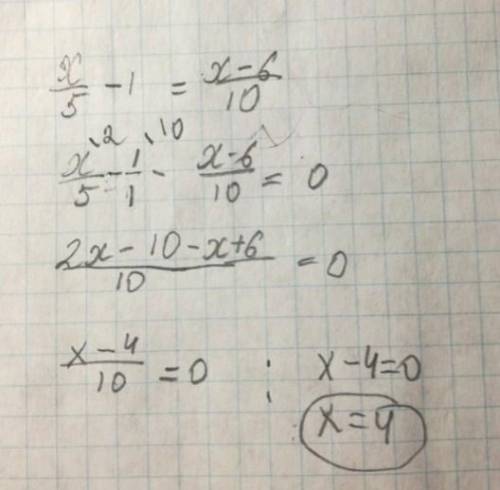 x/5 - 1 = x-6/10
x\2/5 - 1\10/1 - x-6/10 = 0
2x-10-x+6/10 = 0
x-4/10 = 0 ; x-4=0
x=4